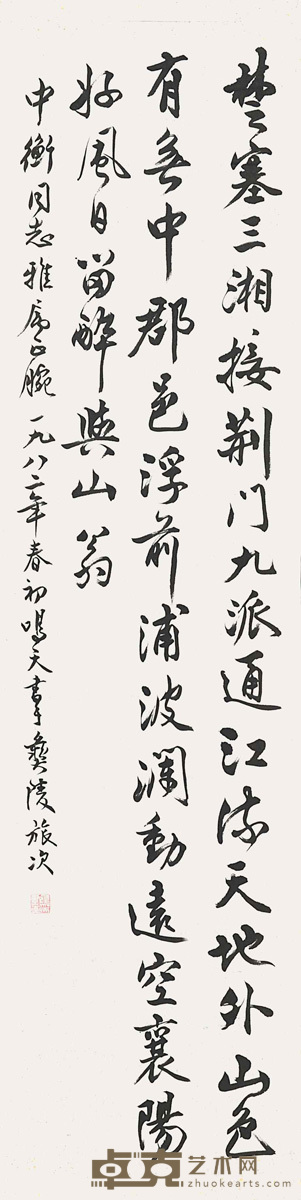 楚塞三湘接荆门九派通江流天地外山色
有无中郡邑浮前浦波澜动远空襄阳
好风日留醉与山翁
中衡同志雅属正腕 一九八二年春初鸣天书于夔陵旅次
卓克艺术网
zhuokearts.com